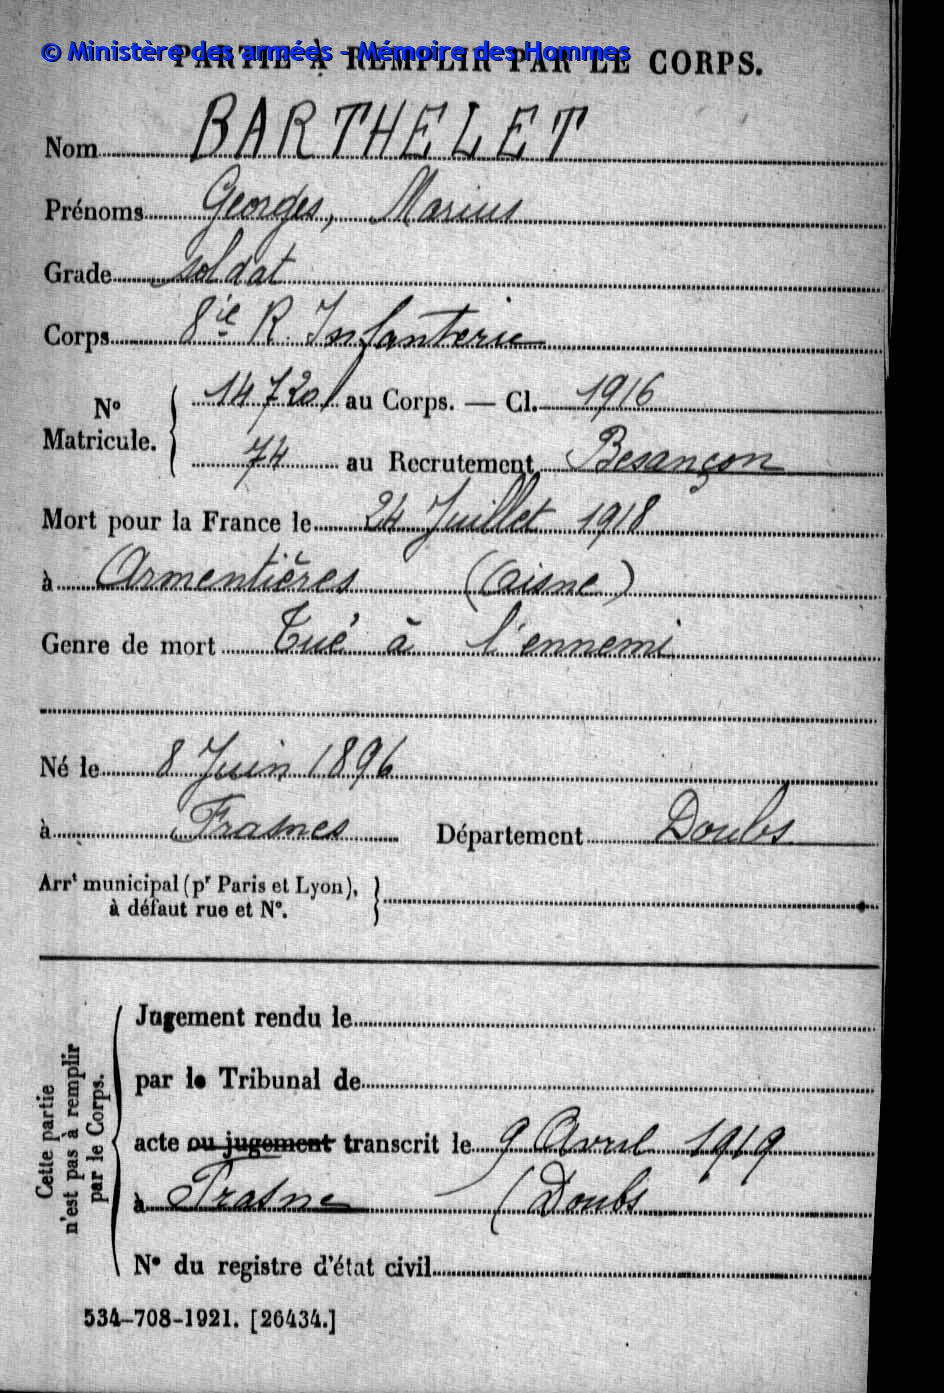 © Ministère des armées - Mémoire des Hommes
PARTIE À REMPLIR PAR LE CORPS.
Nom BARTHELET
Prénoms Georges, Marius
Grade soldat
Corps 8ie R. Infanterie
N° Matricule. { 14720 au Corps. — Cl. 1916
74 au Recrutement Besançon
Mort pour la France le 24 Juillet 1918
à Armentières (Aisne)
Genre de mort Tué à l'ennemi
Né le 8 Juin 1896
à Frasnes Département Doubs
Arrt municipal (pr Paris et Lyon),
à défaut rue et N°. }
Cette partie n'est pas à remplir par le Corps. {
Jugement rendu le
par le Tribunal de
acte ou jugement transcrit le 9 Avril 1919
à Frasne (Doubs
N° du registre d'état civil
534-708-1921. [26434.]